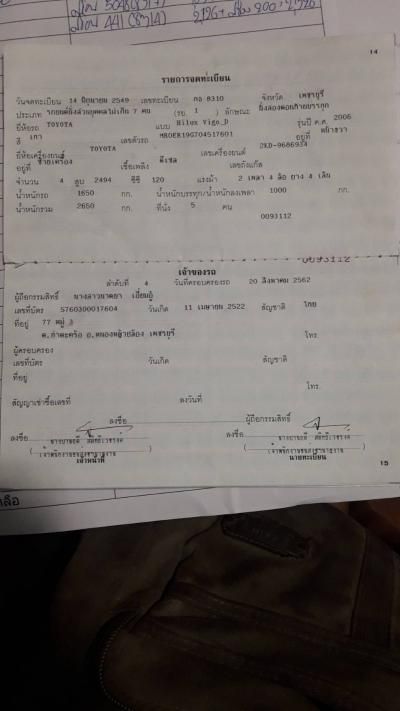 14
รายการจดทะเบียน
วันจดทะเบียน 14 มิถุนายน 2549 เลขทะเบียน กอ 8310 จังหวัด เพชรบุรี
ประเภท รถยนต์นั่งส่วนบุคคลไม่เกิน 7 คน (รย. 1 ) ลักษณะ
ยี่ห้อรถ TOYOTA แบบ Hilux Vigo_D รุ่นปี ค.ศ. 2006
สี เทา เลขตัวรถ MROER19G704517601 อยู่ที่
ยี่ห้อเครื่องยนต์ TOYOTA เลขเครื่องยนต์ 2KD-9686934
อยู่ที่ เชื้อเพลิง ดีเซล เลขถังแก๊ส
จำนวน 4 สูบ 2494 ซีซี 120 แรงม้า 2 เพลา 4 ล้อ ยาง 4 เส้น
น้ำหนักรถ 1650 กก. น้ำหนักบรรทุก/น้ำหนักลงเพลา 1000 กก.
น้ำหนักรวม 2650 กก. ที่นั่ง 5 คน
0093112
0093112
เจ้าของรถ
ลำดับที่ 4 วันที่ครอบครองรถ 20 สิงหาคม 2562
ผู้ถือกรรมสิทธิ์
เลขที่บัตร 5760300017604 วันเกิด 11 เมษายน 2522 สัญชาติ ไทย
ที่อยู่ 77 หมู่ 3
อ.หนองหญ้าปล้อง เพชรบุรี โทร.
ผู้ครอบครอง
เลขที่บัตร วันเกิด สัญชาติ
ที่อยู่
โทร.
สัญญาเช่าซื้อเลขที่ ลงวันที่
ลงชื่อ ผู้ถือกรรมสิทธิ์
ลงชื่อ ลงชื่อ
เจ้าหน้าที่ นายทะเบียน
15